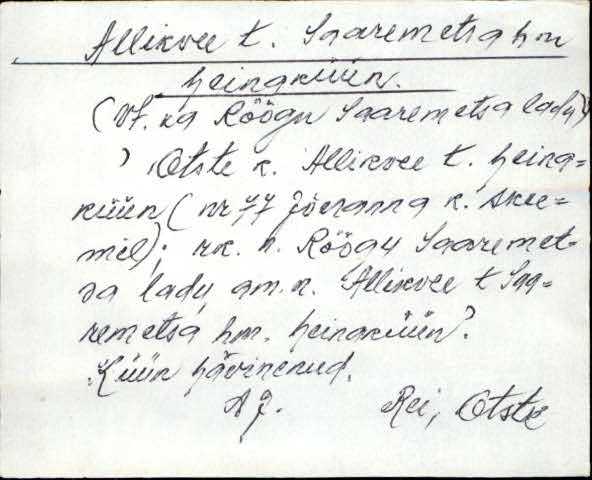 Allikvee t. Saaremetsa hm
heinaküün.
(Vt. ka Röögu Saaremetsa ladu)
) Otste k. Allikvee t. heina=
küün (nr 77 Jõeranna k. skee=
mil); rk. n. Röögu Saaremet-
sa ladu, am. n. Allikvee t Saa=
remetsa hm. heinaküün.
Küün hävinenud.
A J. Rei, Otste